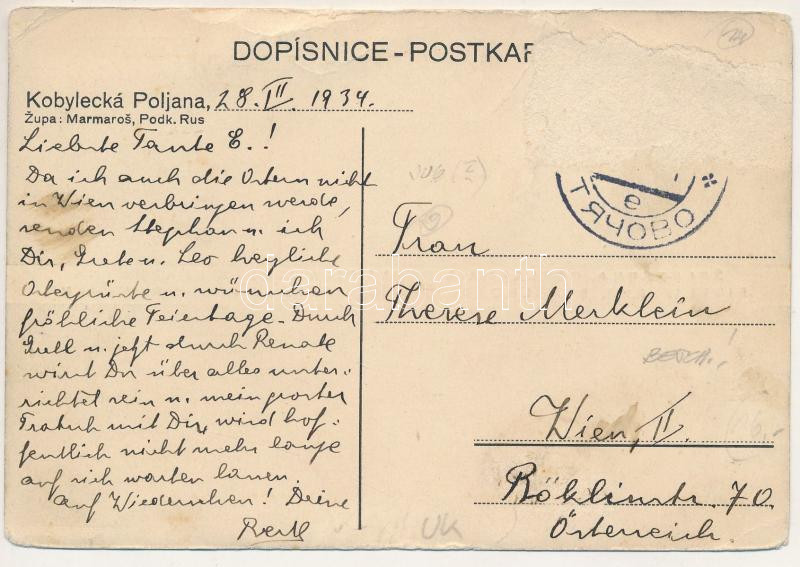 DOPÍSNICE - POSTKAR
Kobylecká Poljana, 28. III. 1934.
Župa: Marmaroš, Podk. Rus
Liebste Tante E.!
Da ich auch die Ostern nicht
in Wien verbringen werde,
senden Stephan u. ich
Dir, Grete u. Leo herzliche
Ostergrüsse u. wünschen
fröhliche Feiertage. Durch
u. jetzt durch Renate
wirst Du über alles unter-
richtet sein u. mein grosser
Tratsch mit Dir, wird hof-
fentlich nicht mehr lange
auf sich warten lassen.
Auf Wiedersehen! Deine
ТЯЧОВО
е
Frau
Therese Merklein
Wien, II.
Böklinstr. 70.
Österreich.
UK
darabanth